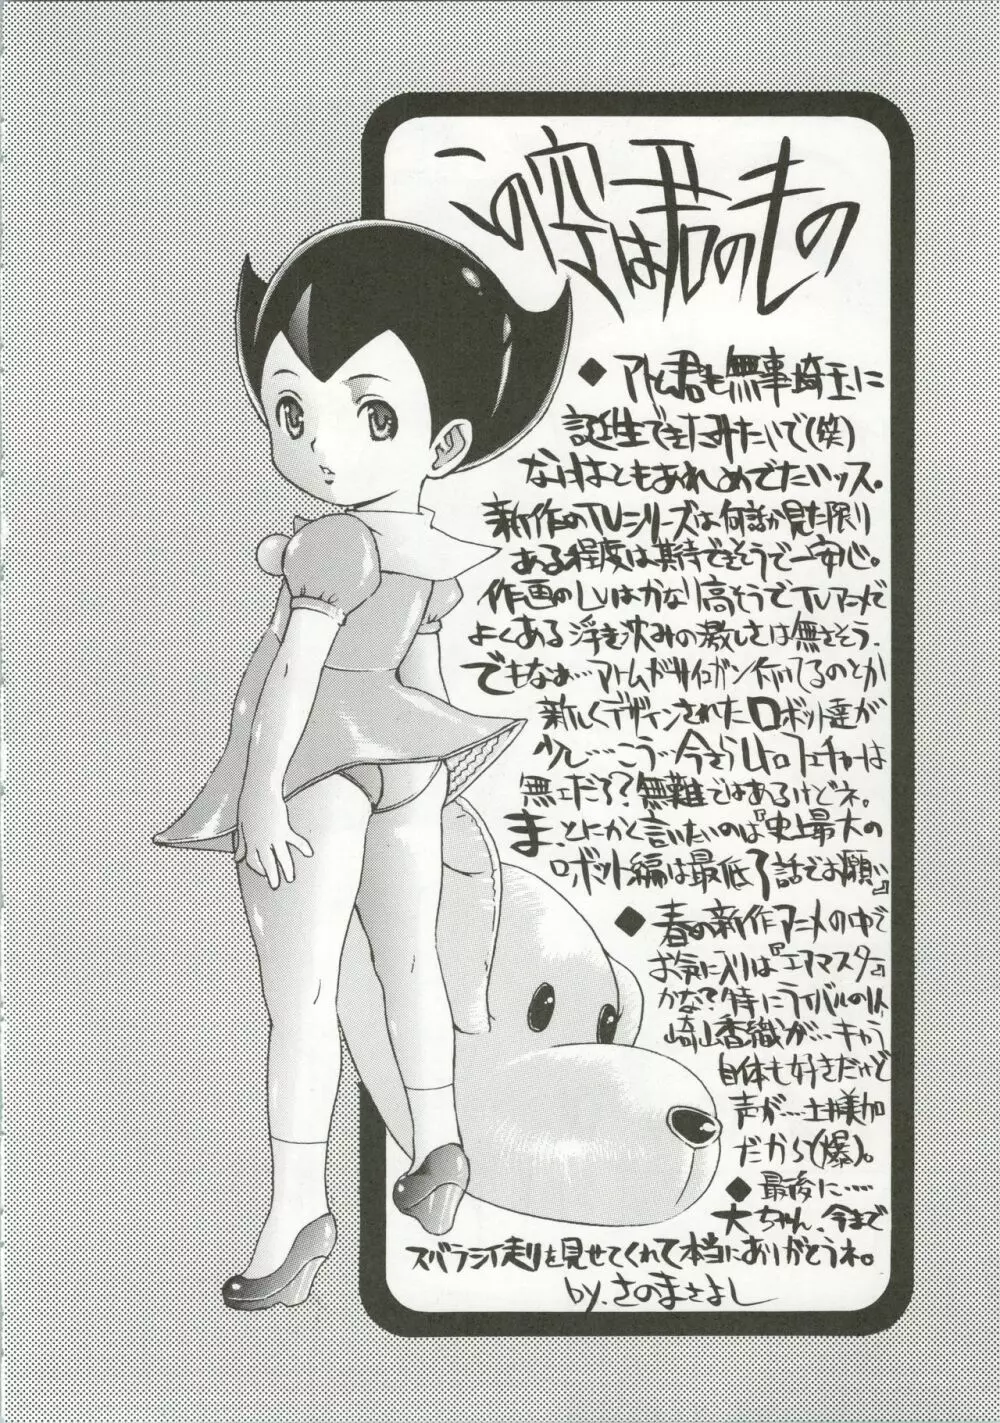 この空は君のもの
◆アトム君も無事埼玉に
誕生できたみたいで(笑)
なにはともあれめでたいッス。
新作のTVシリーズは何話か見た限り
ある程度は期待できそうで一安心。
作画のLvはかなり高そうでTVアニメで
よくある浮き沈みの激しさは無さそう。
でもなぁ…アトムがサイコガン付いてるのとか
新しくデザインされたロボット達が
少し…こう…今さらレトロフューチャーは
無ェだろ?無難ではあるけどネ。
ま、とにかく言いたいのは『史上最大の
ロボット編は最低7話でお願い』
◆春の新作アニメの中で
お気に入りは『エアマスター』
かな?特にライバルの
崎山香織が…キャラ
自体も好きだけど
声が…土様加
だから(爆)。
◆最後に……
大ちゃん、今まで
スバラシイ走りを見せてくれて本当にありがとうネ。
by.さのまさよし